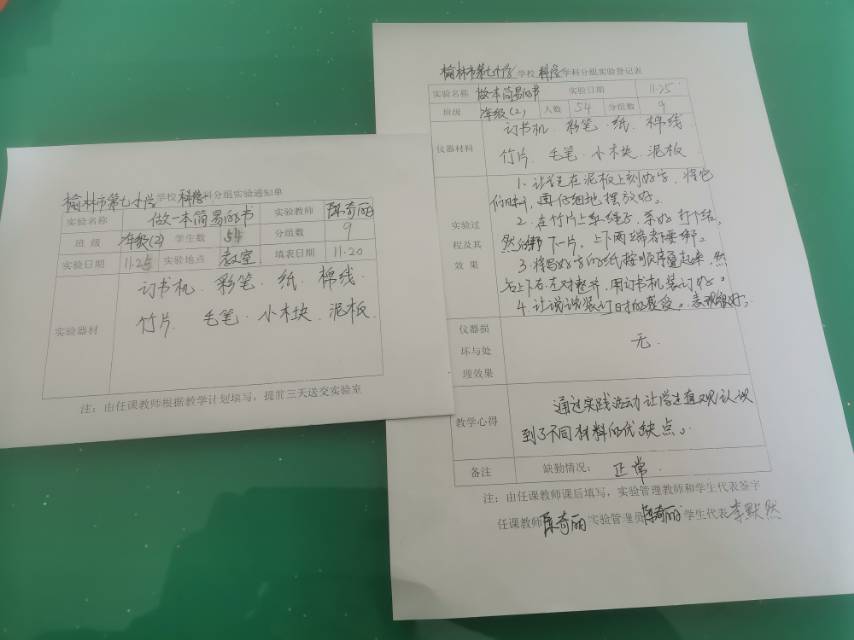 榆林市第七小学学校科学科分组实验通知单
实验名称 做一本简易的书 实验教师 陈奇丽
班 级 年级(2) 学生数 54 分组数 9
实验日期 11.25 实验地点 教室 填表日期 11.20
实验器材
订书机 彩笔 纸 棉线
竹片 毛笔 小木块 泥板
注：由任课教师根据教学计划填写，提前三天送交实验室
榆林市第七小学学校科学学科分组实验登记表
实验名称 做本简易的书 实验日期 11.25
班级 年级(2) 人数 54 分组数 9
仪器材料
订书机 彩笔 纸 棉线
竹片 毛笔 小木块 泥板
实验过程及其效果
1. 让学生在泥板上刻好字，将它
们晾料，再仔细地摆放好。
2. 在竹片上系绳子，系好打个结，
然后绑下一片，上下两端都要绑。
3. 将写好字的纸按顺序叠起来，然
后上下右左对整齐，用订书机装订好。
4. 让说说装订时的感受。表现很好。
仪器损坏与处理效果
无
教学心得
通过实践活动让学生直观认识
到了不同材料的优缺点。
备注 缺勤情况： 正常
注：由任课教师课后填写，实验管理教师和学生代表签字
任课教师 陈奇丽 实验管理员 陈奇丽 学生代表 李默然